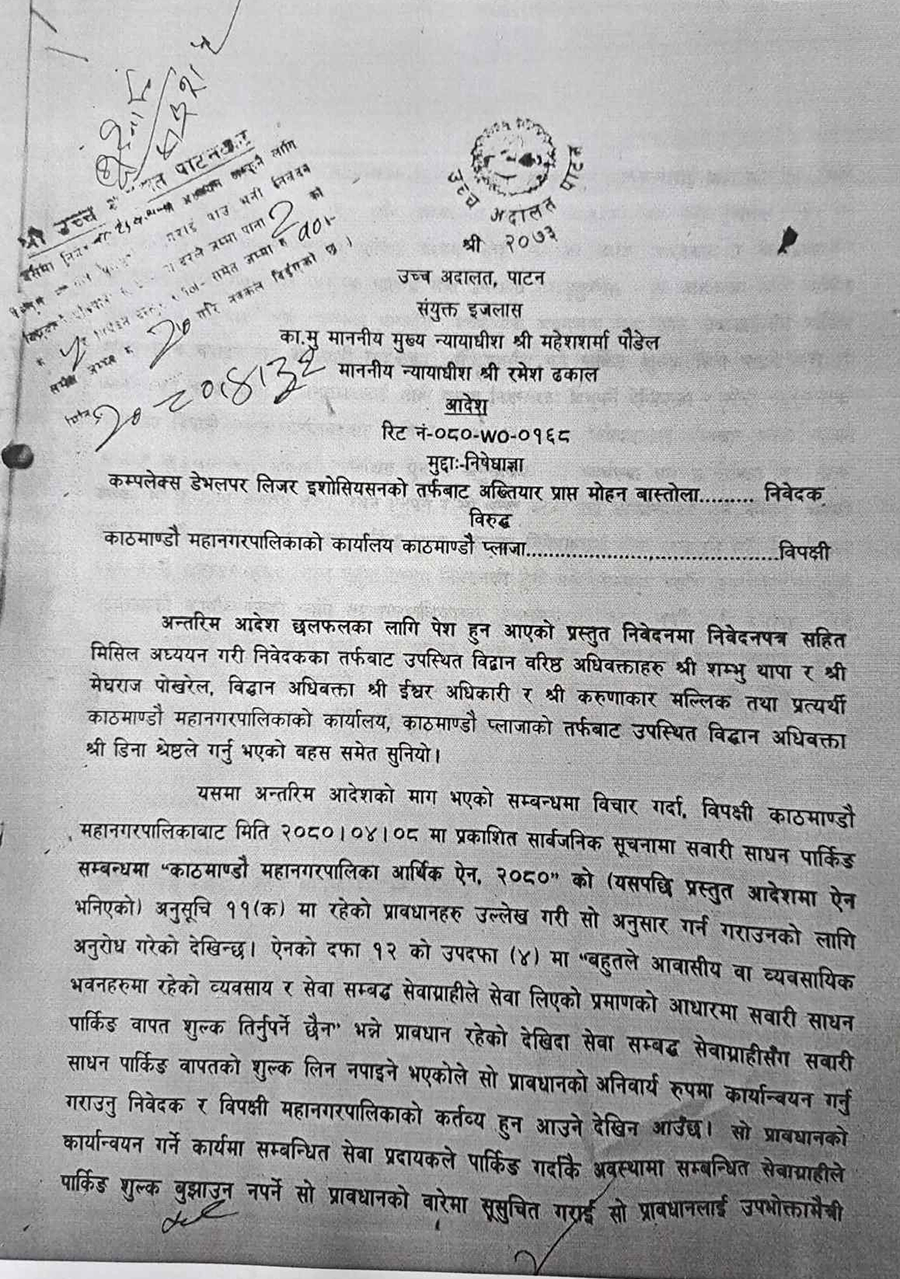 श्री उच्च अदालत पाटन
उच्च अदालत पाटन
श्री २०७३
उच्च अदालत, पाटन
संयुक्त इजलास
का.मु माननीय मुख्य न्यायाधीश श्री महेशशर्मा पौडेल
माननीय न्यायाधीश श्री रमेश ढकाल
आदेश
रिट नं-०८०-WO-०१६८
मुद्दाः-निषेधाज्ञा
कम्पलेक्स डेभलपर लिजर इशोसियसनको तर्फबाट अख्तियार प्राप्त मोहन बास्तोला......... निवेदक
विरुद्ध
काठमाण्डौ महानगरपालिकाको कार्यालय काठमाण्डौ प्लाजा............................................विपक्षी
अन्तरिम आदेश छलफलका लागि पेश हुन आएको प्रस्तुत निवेदनमा निवेदनपत्र सहित
मिसिल अध्ययन गरी निवेदकका तर्फबाट उपस्थित विद्वान वरिष्ठ अधिवक्ताहरु श्री शम्भु थापा र श्री
मेघराज पोखरेल, विद्वान अधिवक्ता श्री ईश्वर अधिकारी र श्री करुणाकार मल्लिक तथा प्रत्यर्थी
काठमाण्डौ महानगरपालिकाको कार्यालय, काठमाण्डौ प्लाजाको तर्फबाट उपस्थित विद्वान अधिवक्ता
श्री डिना श्रेष्ठले गर्नु भएको बहस समेत सुनियो।
यसमा अन्तरिम आदेशको माग भएको सम्बन्धमा विचार गर्दा, विपक्षी काठमाण्डौ
महानगरपालिकाबाट मिति २०८०।०४।०८ मा प्रकाशित सार्बजनिक सूचनामा सवारी साधन पार्किङ
सम्बन्धमा “काठमाण्डौ महानगरपालिका आर्थिक ऐन, २०८०” को (यसपछि प्रस्तुत आदेशमा ऐन
भनिएको) अनुसूचि ११(क) मा रहेको प्रावधानहरु उल्लेख गरी सो अनुसार गर्न गराउनको लागि
अनुरोध गरेको देखिन्छ। ऐनको दफा १२ को उपदफा (४) मा “बहुतले आवासीय वा व्यवसायिक
भवनहरुमा रहेको व्यवसाय र सेवा सम्बद्ध सेवाग्राहीले सेवा लिएको प्रमाणको आधारमा सवारी साधन
पार्किङ वापत शुल्क तिर्नुपर्ने छैन” भन्ने प्रावधान रहेको देखिदा सेवा सम्बद्ध सेवाग्राहीसँग सवारी
साधन पार्किङ वापतको शुल्क लिन नपाइने भएकोले सो प्रावधानको अनिवार्य रुपमा कार्यान्वयन गर्नु
गराउनु निवेदक र विपक्षी महानगरपालिकाको कर्तव्य हुन आउने देखिन आउँछ। सो प्रावधानको
कार्यान्वयन गर्ने कार्यमा सम्बन्धित सेवा प्रदायकले पार्किङ गर्दाकै अवस्थामा सम्बन्धित सेवाग्राहीले
पार्किङ शुल्क बुझाउन नपर्ने सो प्रावधानको वारेमा सूसुचित गराई सो प्रावधानलाई उपभोक्तामैत्री